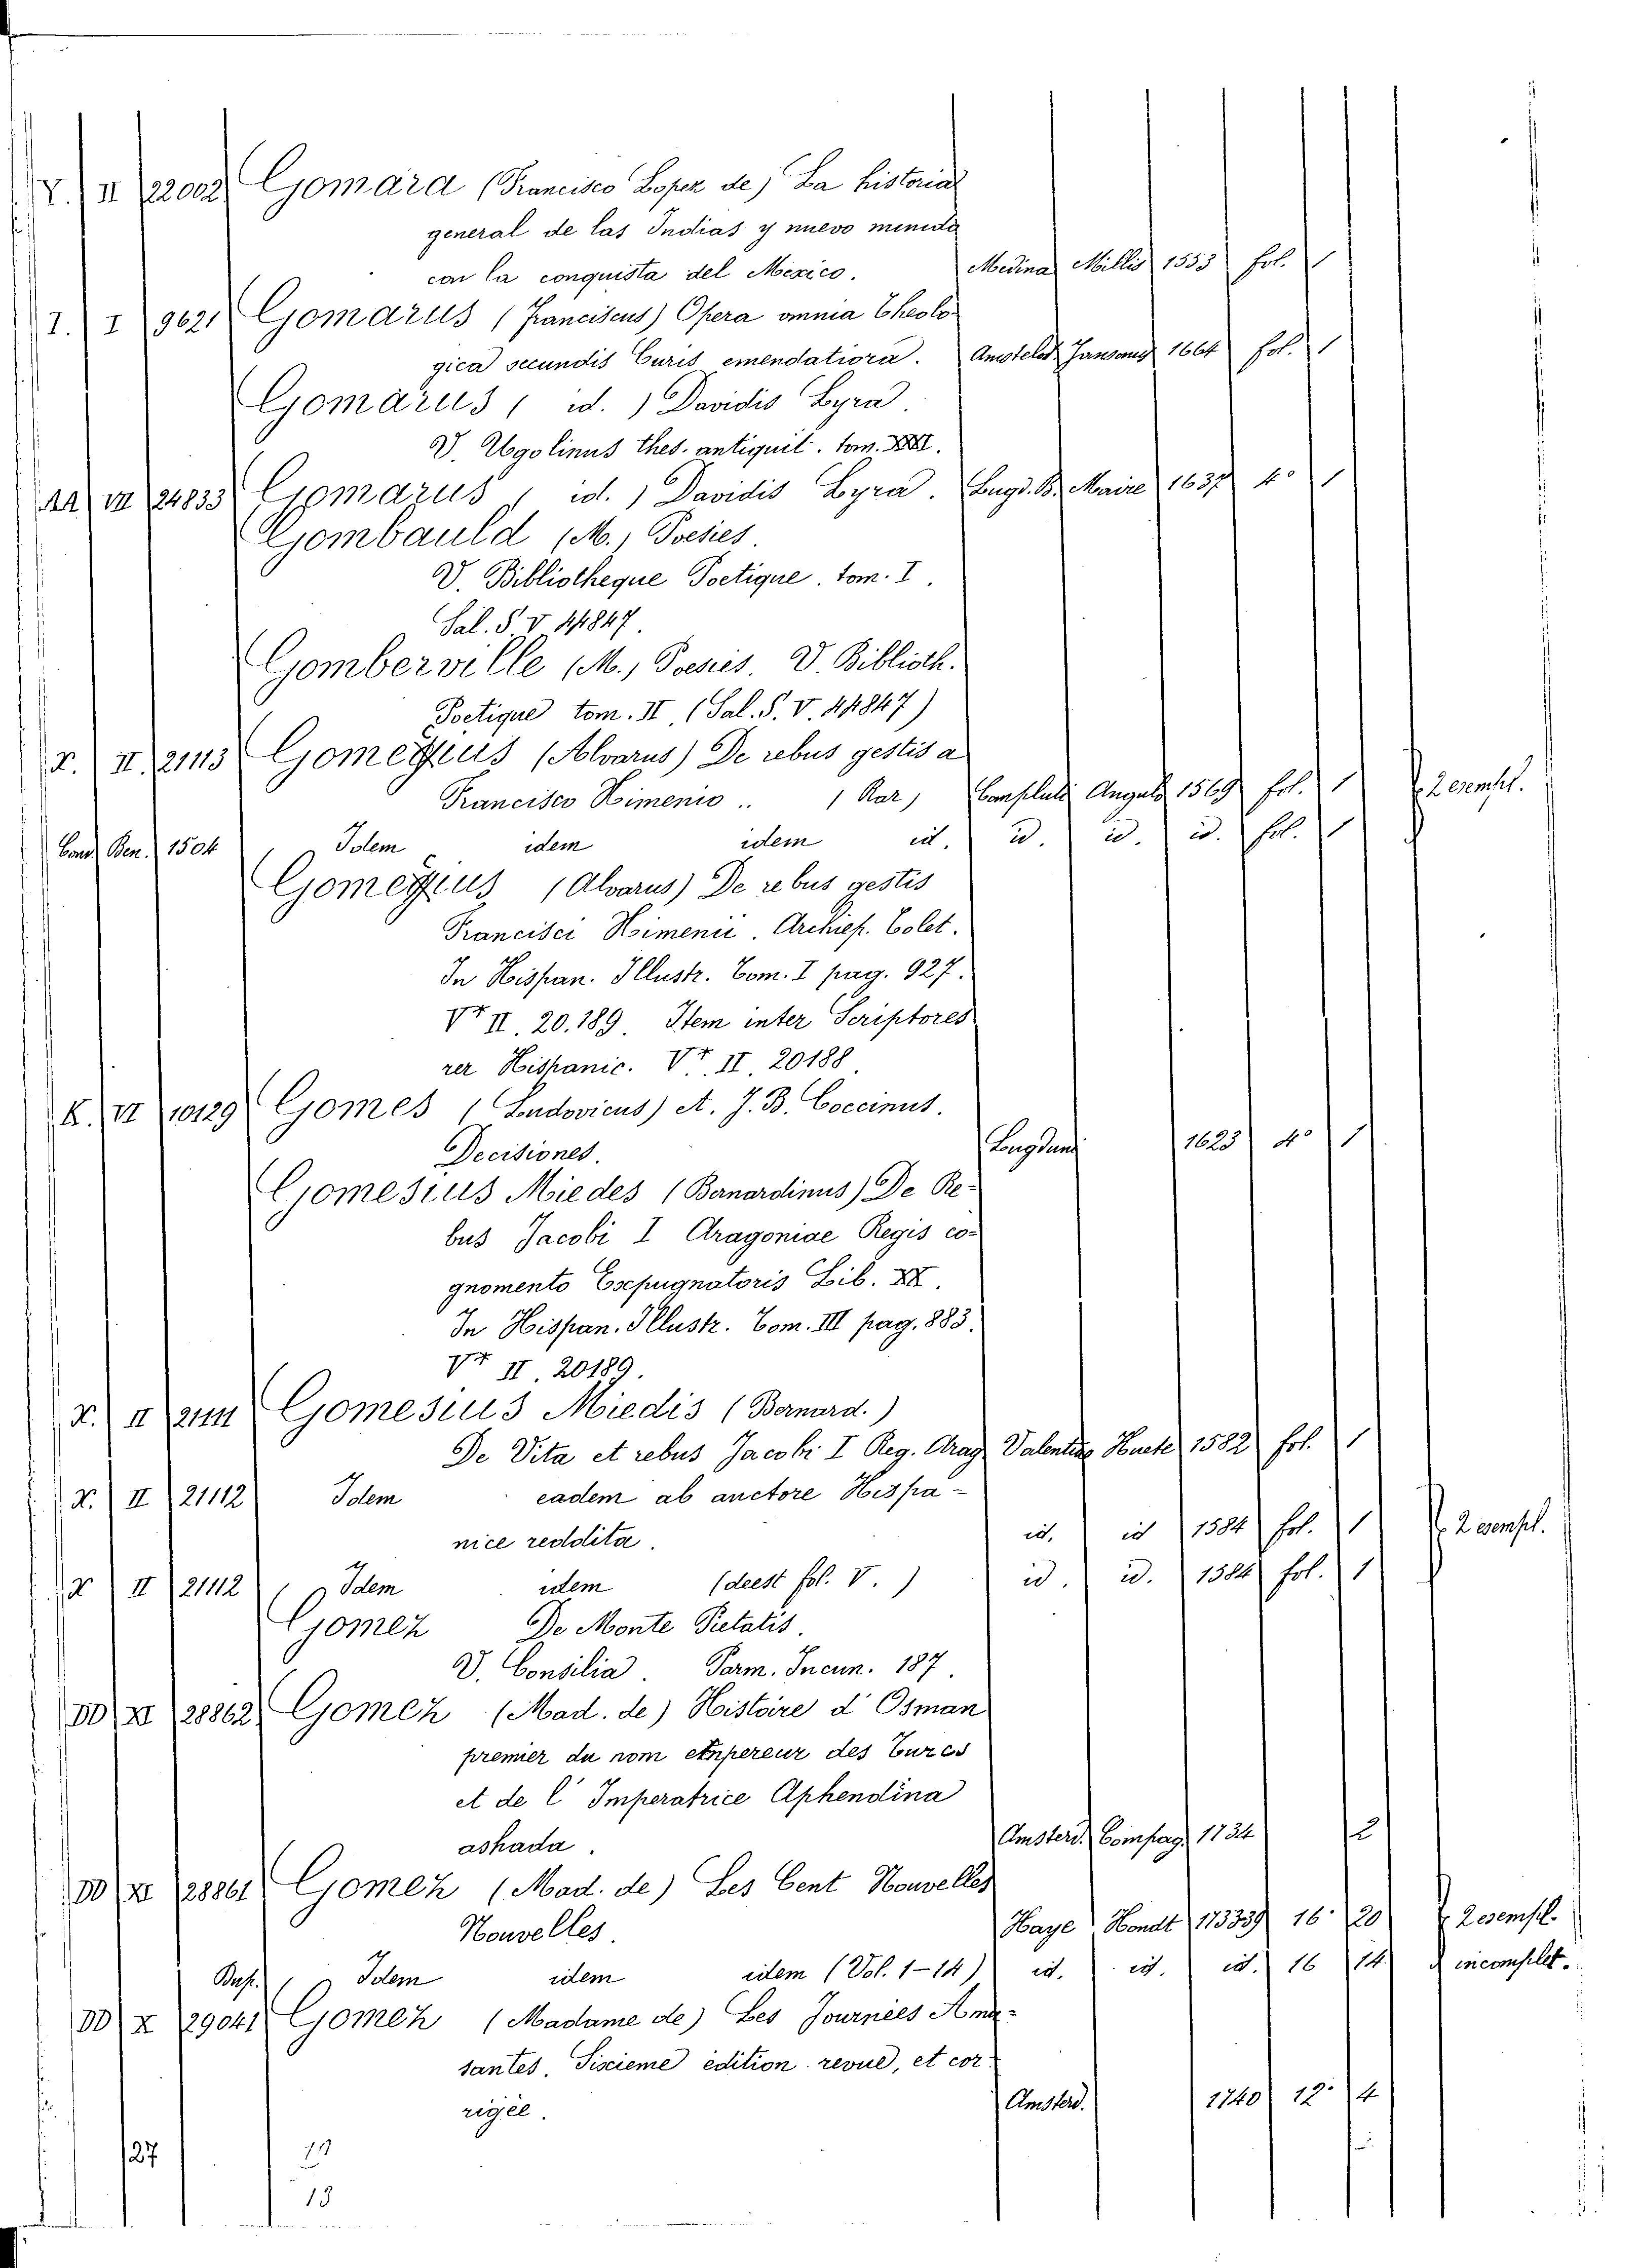 Y. II 22002 Gomara (Francisco Lopez de) La historia
general de las Indias y nuevo mundo
con la conquista del Mexico. Medina Millis 1553 fol. 1
I. I 9621 Gomarus (Franciscus) Opera omnia Theolo-
gica secundis Curis emendatiora. Amstelod Jansons 1664 fol. 1
Gomarus ( id. ) Davidis Lyra.
V. Ugolinus thes. antiquit. tom.
AA VII 24833 Gomarus ( id. ) Davidis Lyra. Lugd. B. Maire 1637 4° 1
Gombauld (M.) Poesies.
V. Bibliotheque Poetique. tom. I.
Sal. S. V 44847.
Gomberville (M.) Poesies. V. Biblioth.
Poetique tom. II. (Sal. S. V. 44847)
X. II. 21113 Gomezius (Alvarus) De rebus gestis a
Francisco Ximenio .. (Rar) Compluti Angulo 1569 fol. 1 2 exempl.
Cand Ben. 1504 Idem idem idem id. id. id. id. fol. 1
Gomezius (Alvarus) De rebus gestis
Francisci Ximenii. Archiep. Tolet.
In Hispan. Illustr. Tom. I pag. 927.
V* II. 20.189. Item inter Scriptores
rer Hispanic. V*. II. 20188
K. VI 10129 Gomes (Ludovicus) et J. B. Coccinus.
Decisiones. Lugduni 1623 4° 1
Gomesius Miedes (Bernardinus) De Re-
bus Jacobi I Aragoniae Regis co-
gnomento Expugnatoris Lib. XX.
In Hispan. Illustr. Tom. III pag. 883.
V* II. 20189.
X. II 21111 Gomesius Miedis (Bernard.)
De Vita et rebus Jacobi I Reg. Arag Valentiae Huete 1582 fol. 1
X. II 21112 Idem eadem ab auctore Hispa-
nice reddita. id. id 1584 fol. 1 2 exempl.
X II 21112 Idem idem (deest fol. V.) id. id. 1584 fol. 1
Gomez De Monte Pietatis.
V. Consilia. Parm. Incun. 187.
DD XI 28862 Gomez (Mad. de) Histoire d'Osman
premier du nom empereur des Turcs
et de l'Imperatrice Aphendina
ashada. Amsterd. Compag 1734 2
DD XI 28861 Gomez (Mad. de) Les Cent Nouvelles
Nouvelles. Haye Hondt 173339 16° 20 2 exempl.
Bup. Idem idem idem (Vol. 1-14) id. id. id. 16 14 incomplet.
DD X 29041 Gomez (Madame de) Les Journées Amu-
santes. Sixieme edition revue, et cor-
rigée. Amsterd. 1740 12° 4
27
13